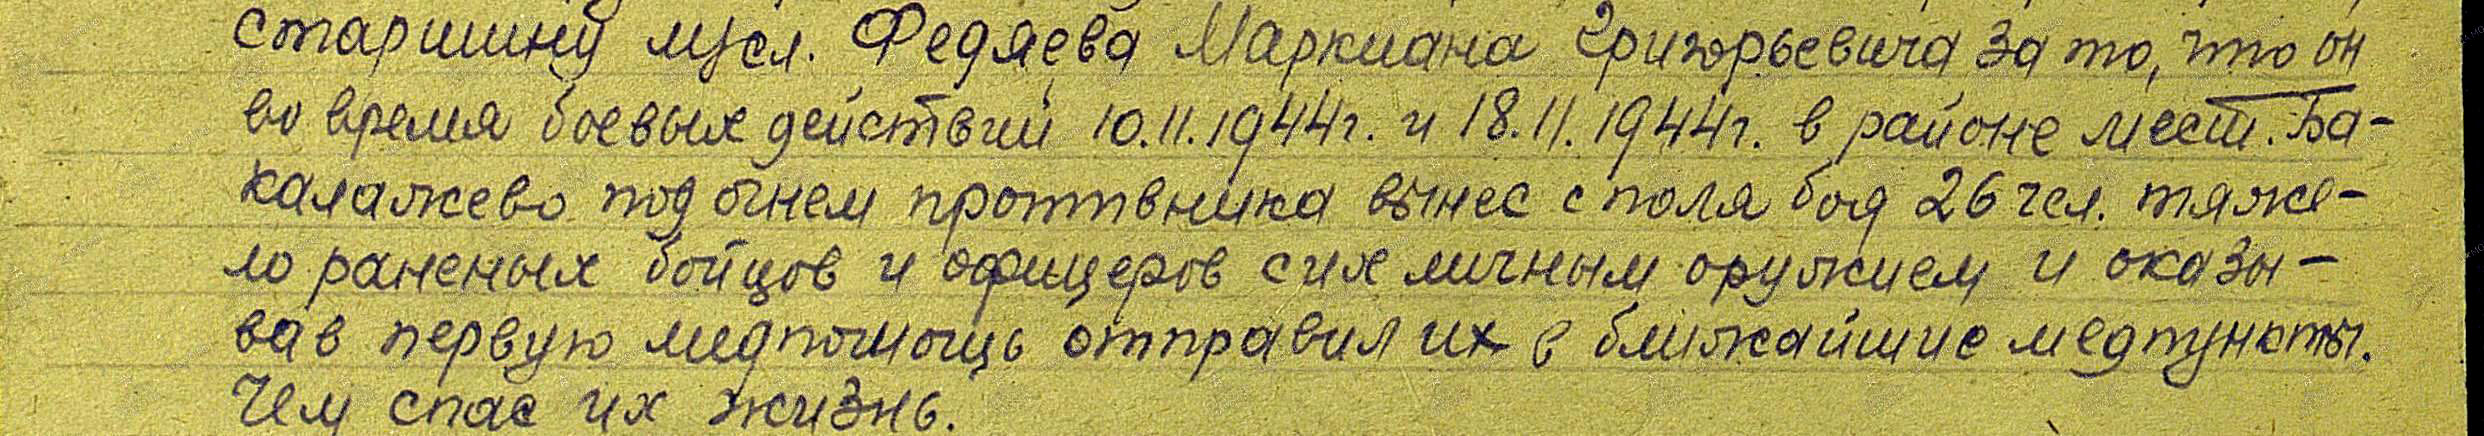 старшину м/сл. Федяева Маркиана Григорьевича за то, что он
во время боевых действий 10.11.1944г. и 18.11.1944г. в районе мест. Ба-
калажево под огнем противника вынес с поля боя 26 чел. тяже-
ло раненых бойцов и офицеров с их личным оружием и оказы-
вав первую медпомощь отправил их в ближайшие медпункты.
Чем спас их жизнь.